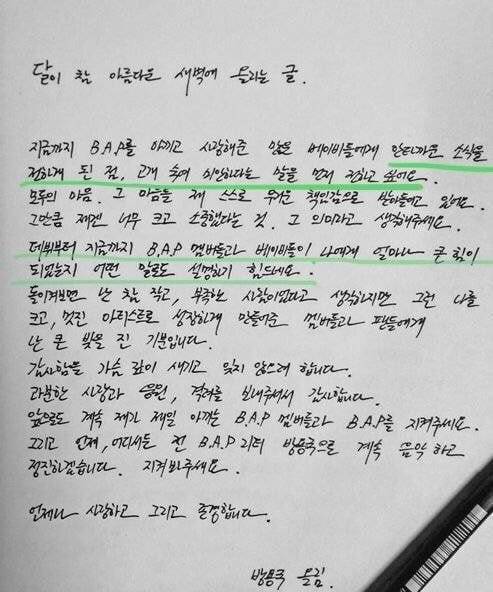 달이 참 아름다운 새벽에 올리는 글.
지금까지 B.A.P를 아끼고 사랑해준 많은 베이비들에게 안타까운 소식을
전하게 된 점, 고개 숙여 미안하다는 말을 먼저 전하고 싶어요.
모두의 마음. 그 마음들 제 스스로 무거운 책임감으로 받아들이고 있어요.
그만큼 제겐 너무 크고 소중했다는 것. 그 의미라고 생각해주세요.
데뷔부터 지금까지 B.A.P 멤버들과 베이비들이 나에게 얼마나 큰 힘이
되었는지 어떤 말로도 설명하기 힘드네요.
돌이켜보면 난 참 작고, 부족한 사람이었다고 생각하지만 그런 나를
크고, 멋진 아티스트로 성장하게 만들어준 멤버들과 팬들에게
난 큰 빚을 진 기분입니다.
감사함을 가슴 깊이 새기고 잊지 않으려 합니다.
과분한 사랑과 응원, 격려를 보내주셔서 감사합니다.
앞으로도 계속 제가 제일 아끼는 B.A.P 멤버들과 B.A.P를 지켜주세요.
그리고 언제, 어디서든 전 B.A.P 리더 방용국으로 계속 음악하고
정진하겠습니다. 지켜봐주세요.
언제나 사랑하고 그리고 존경합니다.
방용국 올림.